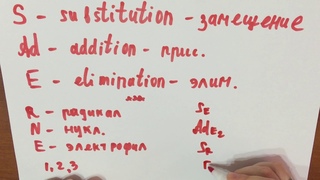 S - substitution - замещение
Ad - addition - прис.
E - elimination - элим.
R - радикал SE
N - нукл. AdE2
E - электрофил SR
1, 2, 3